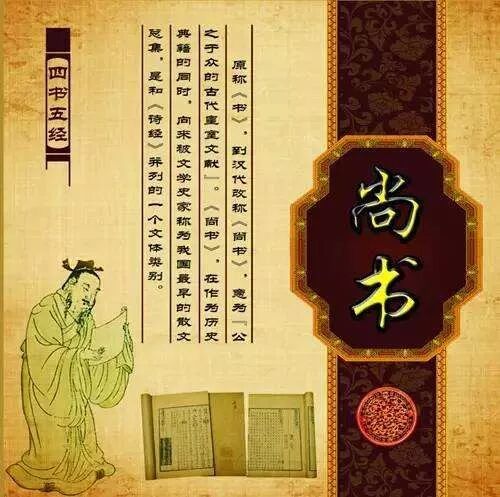 尚书
原称《书》，到汉代改称《尚书》，意为『公
之于众的古代皇室文献』。《尚书》，在作为历史
典籍的同时，向来被文学史家称为我国最早的散文
总集，是和《诗经》并列的一个文体类别。
四书五经